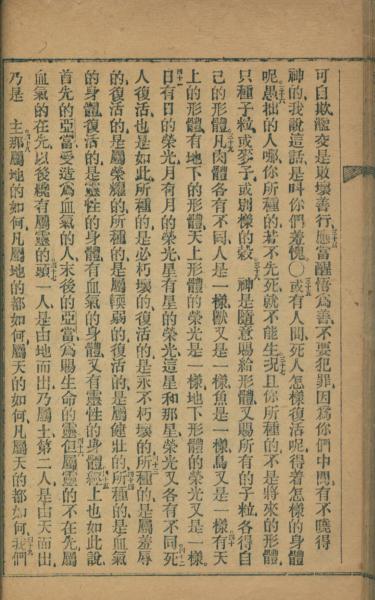 可自欺濫交是敗壞善行應當醒悟爲善不要犯罪因爲你們中間有不曉得
神的我說這話是叫你們羞愧○或有人問死人怎樣復活呢得着怎樣的身體
呢愚拙的人哪你所種的若不先死就不能生況且你所種的不是將來的形體
只種子粒或麥子或別樣的穀 神是隨意賜給形體又賜所有的子粒各得自
己的形體凡肉體各有不同人是一樣獸又是一樣魚是一樣鳥又是一樣有天
上的形體有地下的形體天上形體的榮光是一樣地下形體的榮光又是一樣
日有日的榮光月有月的榮光星有星的榮光這星和那星榮光又各有不同死
人復活也是如此所種的是必朽壞的復活的是永不朽壞的所種的是屬羞辱
的復活的是屬榮耀的所種的是屬輭弱的復活的是屬健壯的所種的是血氣
的身體復活的是靈性的身體有血氣的身體又有靈性的身體經上也如此說
首先的亞當受造爲血氣的人末後的亞當爲賜生命的靈但屬靈的不在先屬
血氣的在先以後纔有屬靈的頭一人是由地而出乃屬土第二人是由天而出
乃是 主那屬地的如何凡屬地的都如何屬天的如何凡屬天的都如何我們